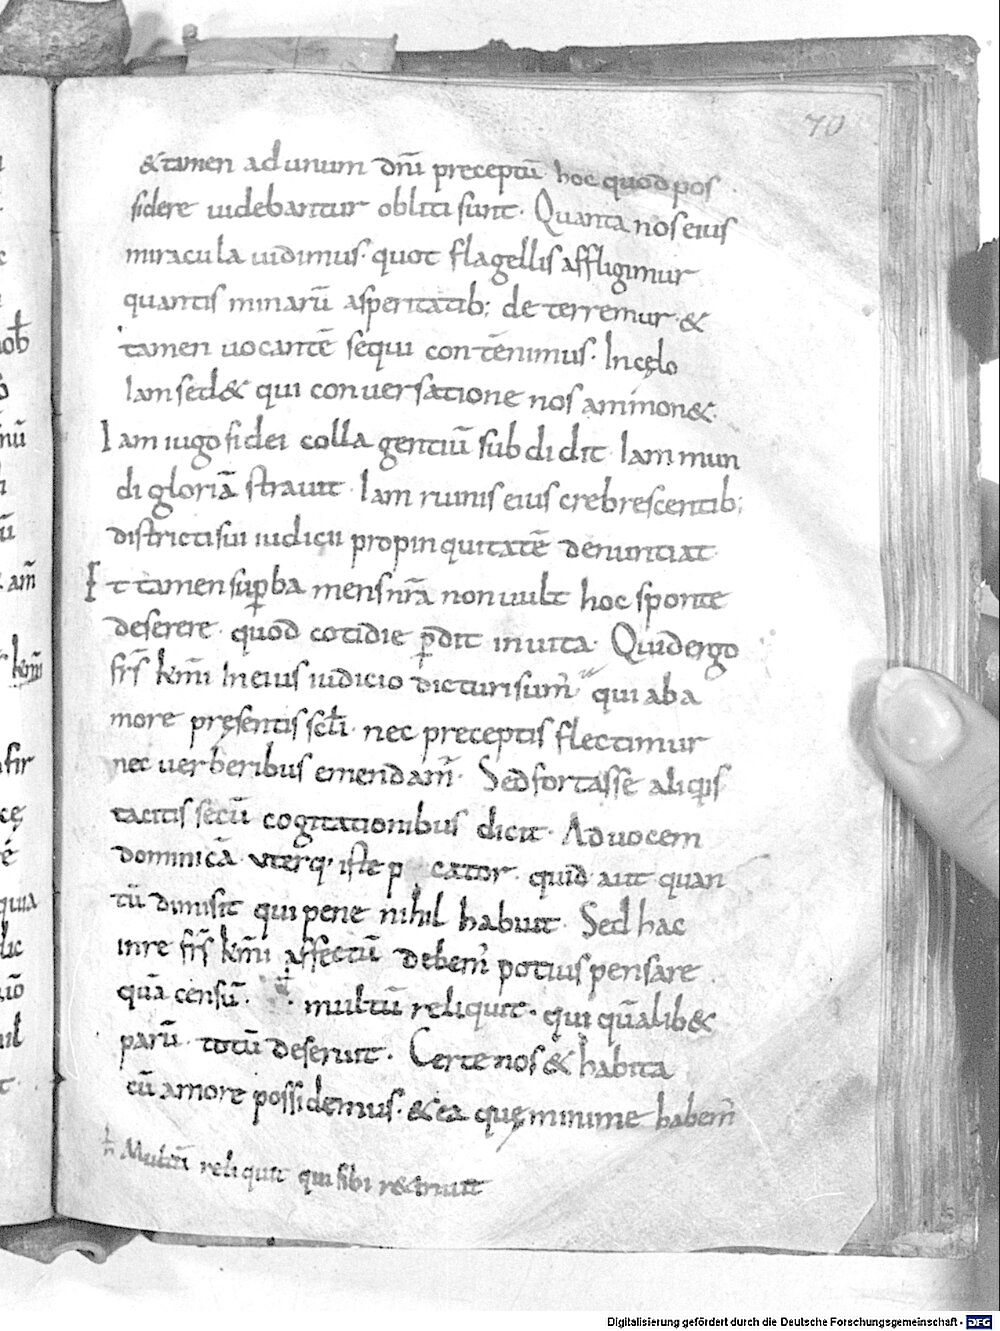 70
&tamen ad unum dn̄i preceptū hoc quod pos
sidere uidebantur obliti sunt. Quanta nos eius
miracula uidimus. quot flagellis affligimur
quantis minarū asperitatib; de terremur. &
tamen uocantē sequi contēnimus. In cęlo
Iam sed& qui conuersatione nos ammon&.
Iam iugo fidei colla gentiū subdidit. Iam mun
di gloriā strauit. Iam ruinis eius crebrescentib;
districti sui iudicii propinquitatē denuntiat.
Et tamen sup̄ba mens nr̄a non uult hoc sponte
deserere. quod cotidie p̄dit inuita. Quid ergo
fr̄s km̄i In eius iudicio dicturi sum̄. qui ab a
more pręsentis sc̄li. nec preceptis flectimur
nec uerberibus emendam̄. Sed fortasse aliquis
tacitis secū cogitationibus dicit. Ad uocem
dominicā. uterq; iste p cator. quid aut quan
tū dimisit qui pene nihil habuit. Sed hac
in re fr̄s km̄i affectū debem̄ potius pensare
quā censū. multū reliquit. qui quālib&
parū. totū deseruit. Certe nos & habita
cū amore possidemus. & ea quę minime habem̄
Multū reliquit qui sibi r&inuit
nob
nū
ū
am̄
km̄i
fir
cę
é
quia
lic
nil
Digitalisierung gefördert durch die Deutsche Forschungsgemeinschaft - DFG